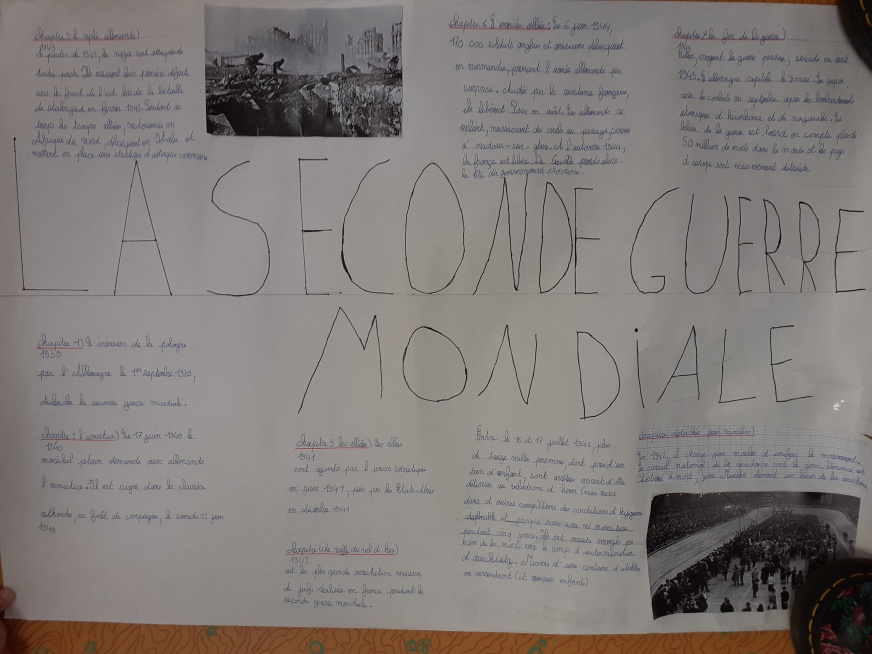 Chapitre 5 le repli allemand)
1942
A partir de 1942, les nazis sont attaqués de
toute part. Ils essuient leur première défaite
sur le front de l'est lors de la bataille
de stalingrad en février 1943. Pendant ce
temps les troupes alliées, victorieuses en
Afrique du Nord, débarquent en Italie et
mettent en place une stratégie d'attaques
Chapitre 6 l'avancée alliée: Le 6 juin 1944,
130 000 soldats anglais et américains débarquent
en normandie, prenant l'armée allemande par
surprise. Aidés par la résistance française,
ils libèrent Paris en août. Les allemands se
replient, massacrant des civils au passage
à oradour-sur-glane. A l'automne 1944,
la france est libre. De Gaulle prend alors
la tête du gouvernement provisoire.
Chapitre 7 la fin de la guerre)
1945
Hitler, voyant la guerre perdue, suicide en avril
1945. L'allemagne capitule le 8 mai. Le japon
cesse le combat en septembre après les bombardements
atomiques d'hiroshima et de nagasaki. Le
bilan de la guerre est lourd on compte plus de
50 millions de morts dans le monde et les pays
d'europe sont massivement détruits
LA SECONDE GUERRE
MONDIALE
Chapitre 1) L'invasion de la pologne
1939
par l'Allemagne le 1er septembre 1939,
déclenche la seconde guerre mondiale.
Chapitre 2 l'armistice) Le 17 juin 1940 le
1940
maréchal pétain demande aux allemands
l'armistice. Il est signé dans la clairière
rethondes, en forêt de compiègne, le samedi 22 juin
1940
Chapitre 3 les alliés) Les alliés
1941
ont rejoints par l'union soviétique
en juin 1941, puis par les États-Unis
en décembre 1941
Chapitre 4 la raffle du vel d'hiv)
1942
est la plus grande arrestation massive
de juifs réalisée en france pendant la
seconde guerre mondiale.
Entre le 16 et 17 juillet 1942, plus
de treize mille personnes, dont près d'un
tiers d'enfant, sont arrêtées avant d'être
détenues au vélodrome d'hiver (mais aussi
dans d'autres camps) Dans des conditions d'hygiène
et presque sans eau ni nourriture
pendant cinq jours. Ils sont ensuite
de la mort vers le camp d'extermination
d'auschwitz. Moins d'une centaine d'adultes
en reviendront (et aucun enfants)
Chapitre
En 1943, il charge jean moulin d'unifier les mouvements,
le conseil national de la résistance voit le jour. Dénoncé
Jean Moulin devient un héros de la résistance